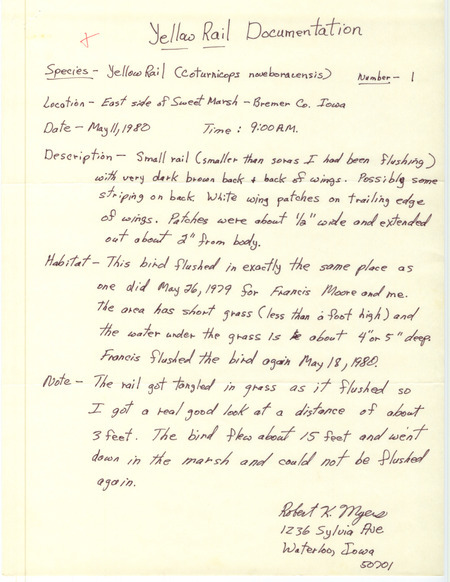 Yellow Rail Documentation
Species - Yellow Rail (Coturnicops noveboracensis) Number - 1
Location - East side of Sweet Marsh - Bremer Co. Iowa
Date - May 11, 1980 Time : 9:00 A.M.
Description - Small rail (smaller than soras I had been flushing)
with very dark brown back & back of wings. Possibly some
striping on back. White wing patches on trailing edge
of wings. Patches were about 1/2" wide and extended
out about 2" from body.
Habitat - This bird flushed in exactly the same place as
one did May 26, 1979 for Francis Moore and me.
The area has short grass (less than a foot high) and
the water under the grass is about 4" or 5" deep.
Francis flushed the bird again May 18, 1980.
Note - The rail got tangled in grass as it flushed so
I got a real good look at a distance of about
3 feet. The bird flew about 15 feet and went
down in the marsh and could not be flushed
again.
Robert K. Myers
1236 Sylvia Ave
Waterloo, Iowa
50701